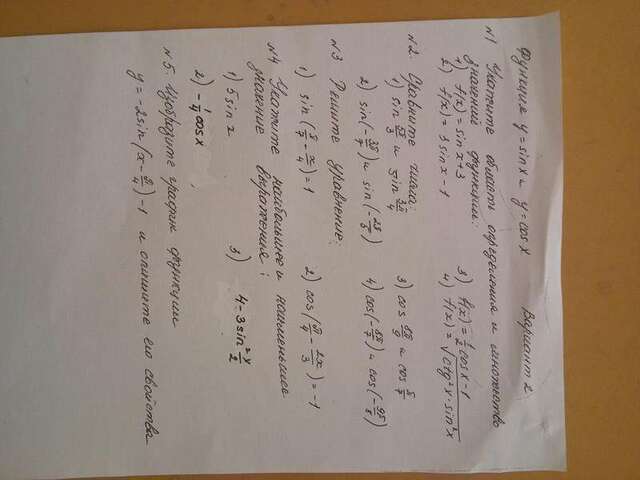 Функция y = sin x и y = cos x Вариант 2
N1 Укажите область определения и множество
значений функции:
1) f(x) = sin x + 3
2) f(x) = 3 sin x - 1
3) f(x) = 1/2 cos x - 1
4) f(x) = √(ctg²x · sin²x)
N2. Сравните числа:
2) sin(- ) и sin(- )
3) cos и cos
4) cos(- ) и cos(- )
N3 Решите уравнение:
1) sin( - ) = 1
2) cos(π/4 - 2x/3) = -1
N4 Укажите наибольшее и наименьшее
значение выражения:
1) 5 sin
2) - 1/4 cos x
3) 4 - 3 sin²
N5. Изобразите график функции
y = -2 sin(x - π/4) - 1 и опишите его свойства